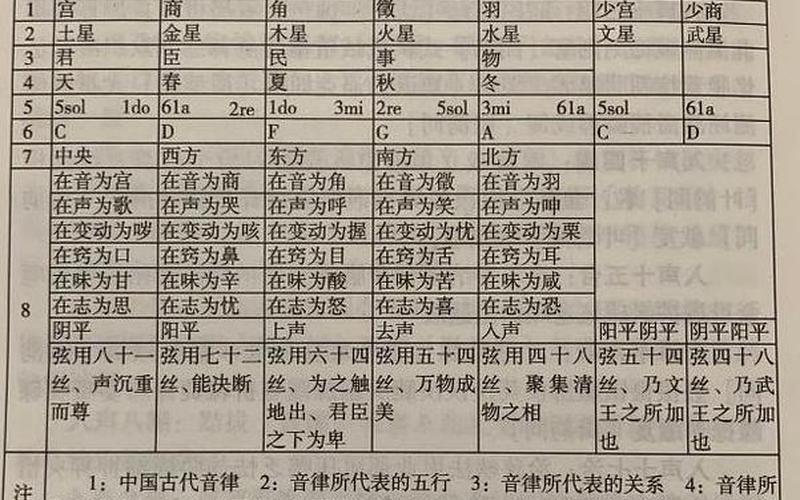 1 宫 商 角 徵 羽 少宫 少商
2 土星 金星 木星 火星 水星 文星 武星
3 君 臣 民 事 物
4 天 春 夏 秋 冬
5 5sol 1do 61a 2re 1do 3mi 2re 5sol 3mi 61a 5sol 61a
6 C D F G A C D
7 中央 西方 东方 南方 北方
8
在音为宫 在音为商 在音为角 在音为徵 在音为羽
在声为歌 在声为哭 在声为呼 在声为笑 在声为呻
在变动为哕 在变动为咳 在变动为握 在变动为忧 在变动为栗
在窍为口 在窍为鼻 在窍为目 在窍为舌 在窍为耳
在味为甘 在味为辛 在味为酸 在味为苦 在味为咸
在志为思 在志为忧 在志为怒 在志为喜 在志为恐
阴平 阳平 上声 去声 入声 阳平阴平 阴平阳平
弦用八十一 弦用七十三 弦用六十四 弦用五十四 弦用四十八 弦五十四 弦四十八
丝、声沉重 丝、能决断 丝、为之触 丝、万物成 丝、聚集清 丝、乃文 丝、乃武
而尊 地出、君臣 美 物之相 王之所加 王之所加
之下为卑 也 也
注 1：中国古代音律 2：音律所代表的五行 3：音律所代表的关系 4：音律所